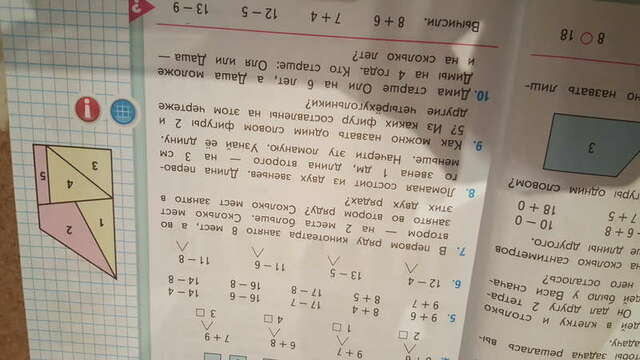 9 + 7
2 □ 1 □
6 + 8
4 □
7 + 9
3 □
5. 9 + 6 8 + 4 17 − 7 16 − 6 14 − 4
9 + 7 8 + 5 17 − 8 16 − 8 14 − 8
6. 12 − 4 13 − 5 11 − 6 11 − 8
7. В первом ряду кинотеатра занято 8 мест, а во
втором — на 2 места больше. Сколько мест
занято во втором ряду? Сколько мест занято в
этих двух рядах?
8. Ломаная состоит из двух звеньев. Длина перво-
го звена 1 дм, длина второго — на 3 см
меньше. Начерти эту ломаную. Узнай её длину.
9. Как можно назвать одним словом фигуры 2 и
5? Из каких фигур составлены на этом чертеже
другие четырёхугольники?
10. Дима старше Оли на 6 лет, а Даша моложе
Димы на 4 года. Кто старше: Оля или Даша —
и на сколько лет?
Вычисли. 8 + 6 7 + 4 12 − 5 13 − 9
?
1
2
3
4
5
!
тобы задача решалась вы-
адачу.
дей в клетку и столько
Он дал другу 2 тетра-
дей было у Васи снача-
него осталось?
на сколько сантиметров
ше длины другого.
6 + 8 10 − 0
7 + 5 18 + 0
гуры одним словом?
3
но назвать лиш-
8 ○ 18